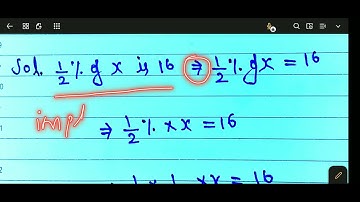 Sol. 1/2 % of x is 16 ⇒ 1/2 % of x = 16
impl ⇒ 1/2 % × x = 16